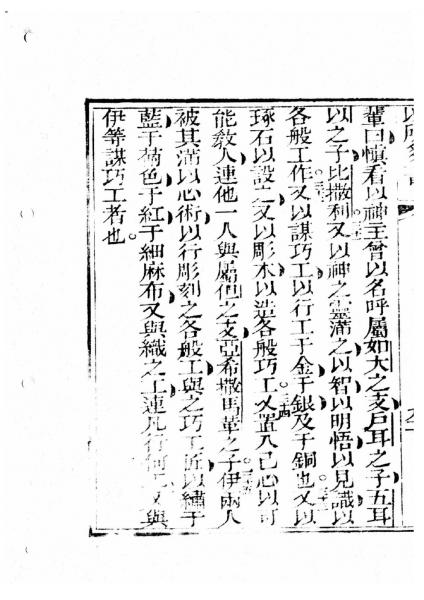 輩曰慎看以神主曾以名呼屬如大之支戶耳之子五耳
以之子比撒利又以神之靈滿之以智以明悟以見識以
各般工作又以謀巧工以行工于金于銀及于銅也又以
琢石以設之又以彫木以造各般巧工。三十四又置入己心以可
能教人連他一人與屬但之支亞希撒馬革之子伊兩人
被其滿以心術以行彫刻之各般工與之巧工匠以繡于
藍于菊色于紅于細麻布又與織之工連凡行何工又與
伊等謀巧工者也。